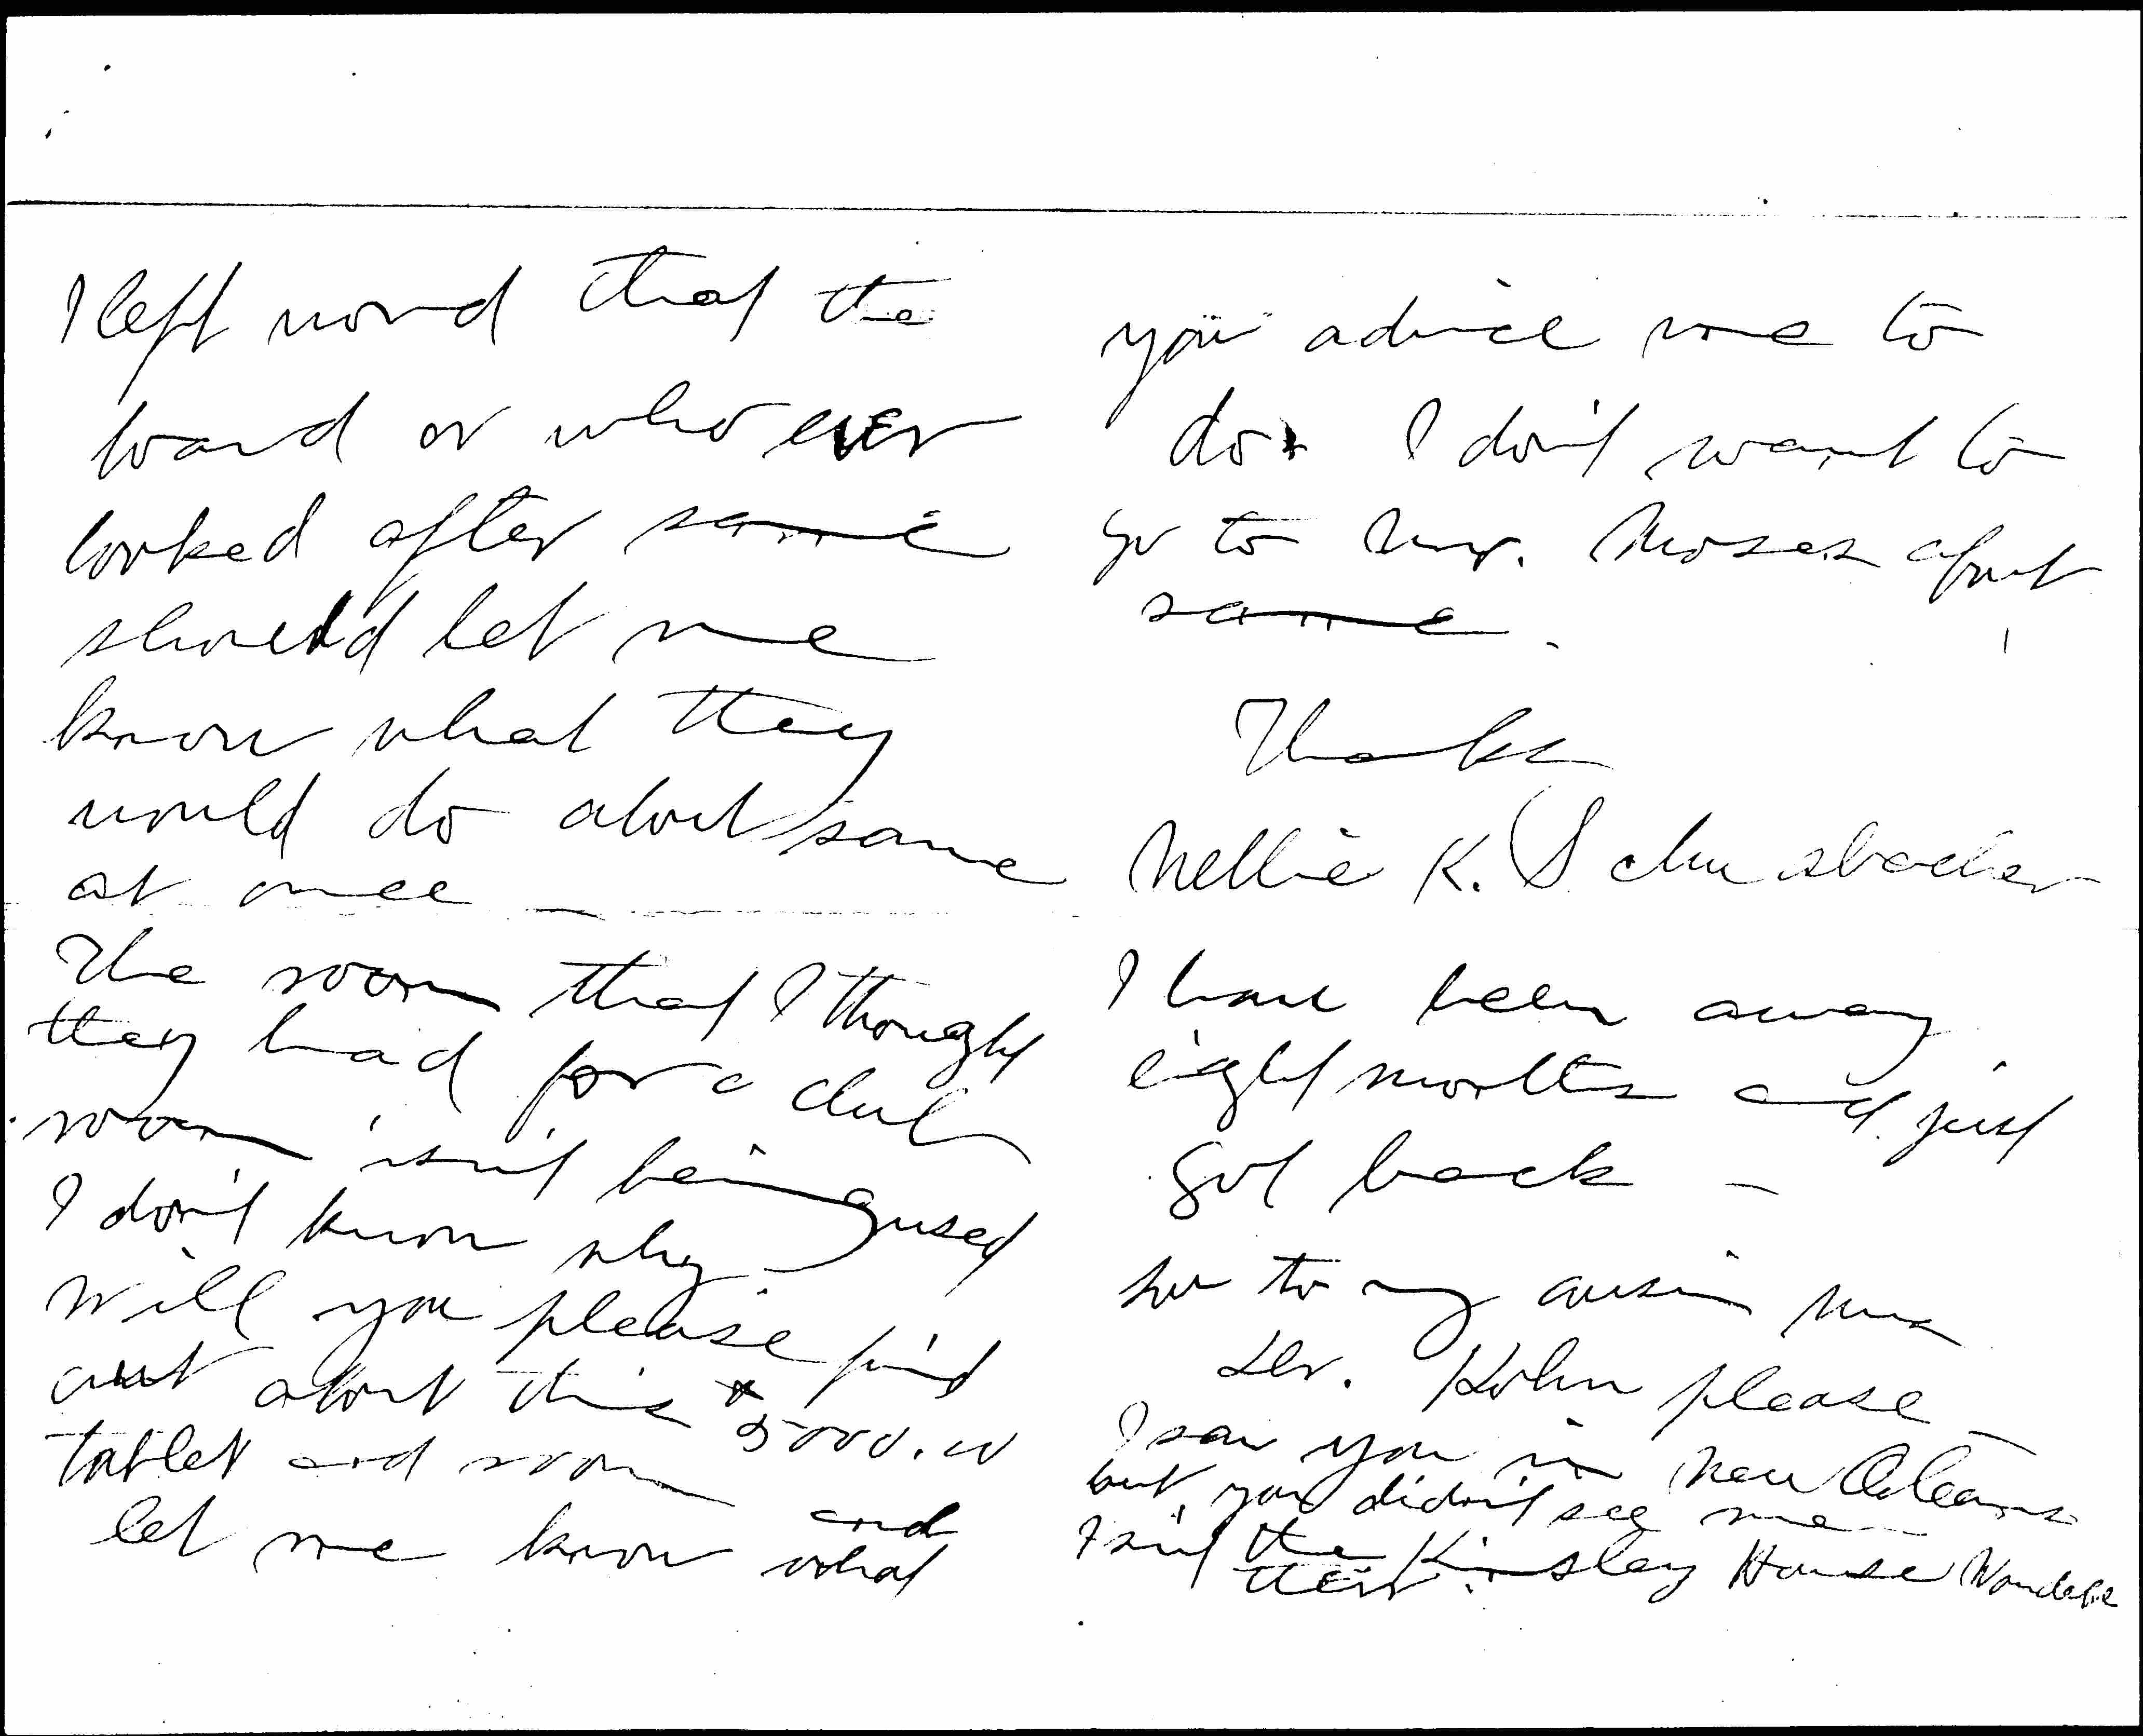 I left word that the
board or who ever
looked after same
should let me
know what they
would do about same
at once —
The room that I thought
they had for a club
room isn't being used
I don't know why —
Will you please find
out about this
tablet and room $5000.00
let me know and what
you advice me to
do. I don't want to
go to Mr. Moses about
same.
Thanks
Nellie K.
I have been away
eight months and just
got back —
to my cousin
Kohn please —
I saw you in New Orleans
but you didn't see me —
Isn't the Kingsley House Wonderful
there.